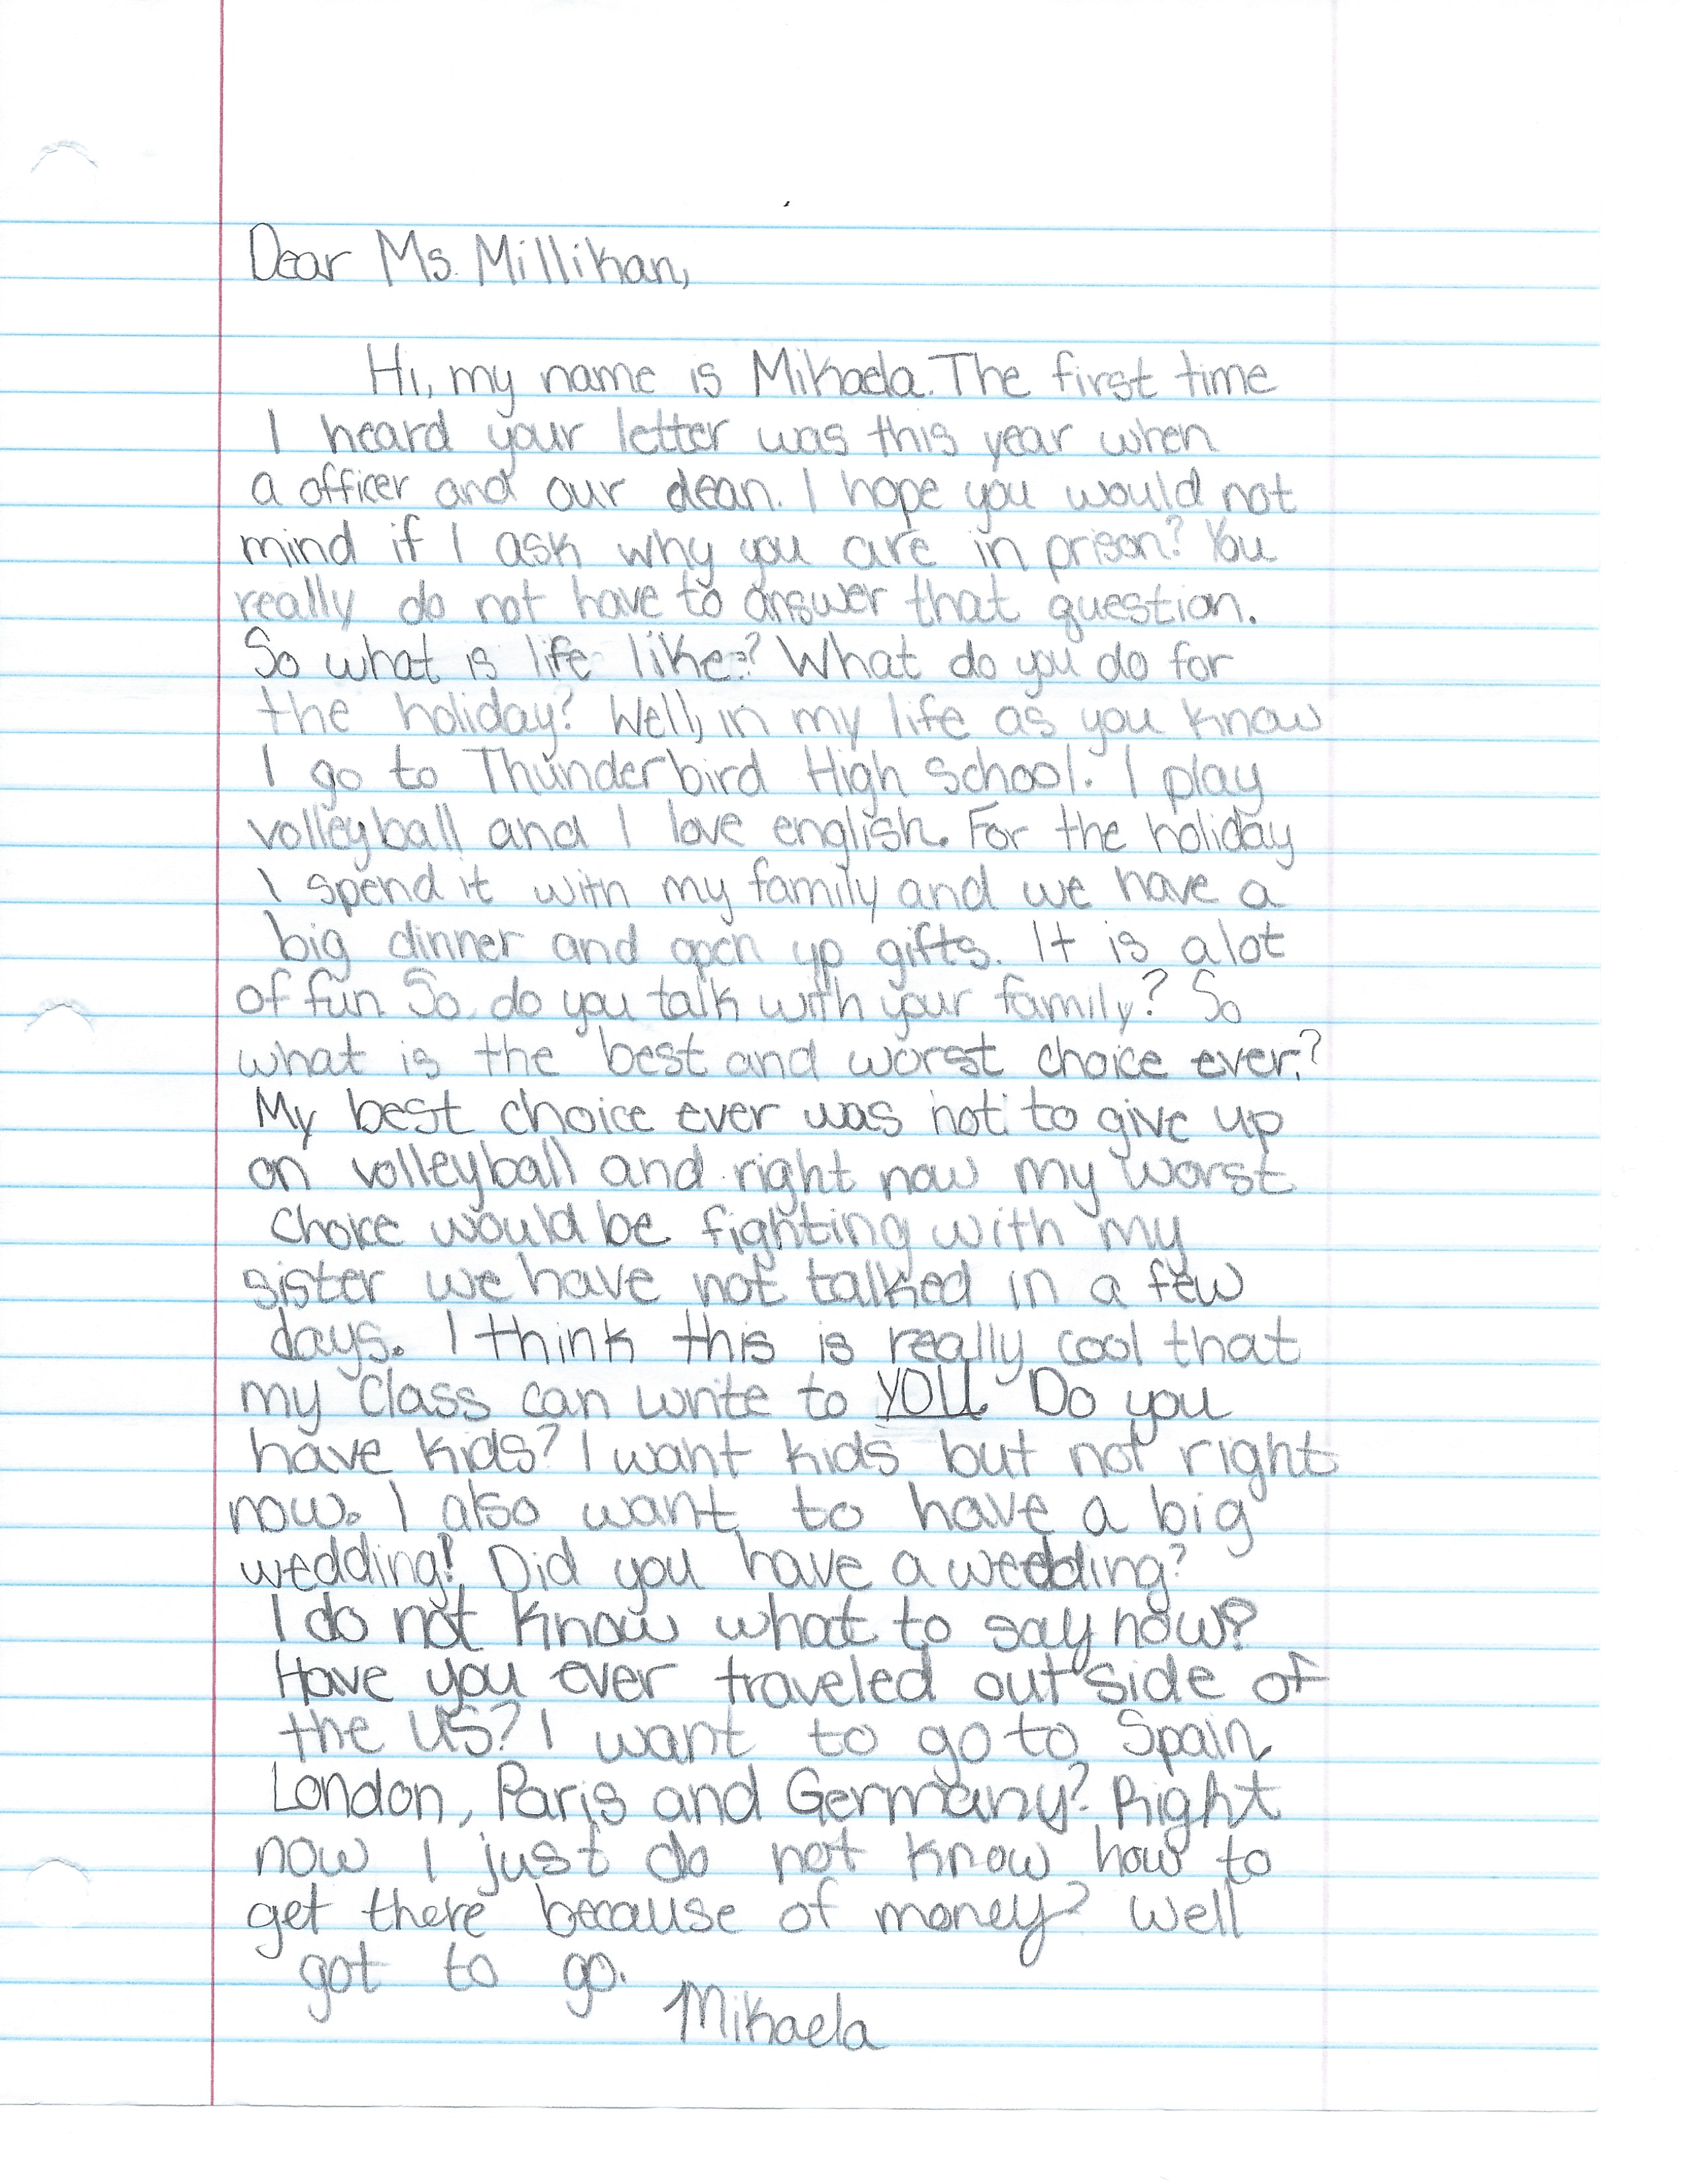 Dear Ms. Millikan,
Hi, my name is Mikaela. The first time
I heard your letter was this year when
a officer and our dean. I hope you would not
mind if I ask why you are in prison? You
really do not have to answer that question.
So what is life like? What do you do for
the holiday? Well, in my life as you know
I go to Thunderbird High School. I play
volleyball and I love english. For the holiday
I spend it with my family and we have a
big dinner and open up gifts. It is alot
of fun. So, do you talk with your family? So
what is the best and worst choice ever?
My best choice ever was not to give up
on volleyball and right now my worst
choice would be fighting with my
sister we have not talked in a few
days. I think this is really cool that
my class can write to YOU. Do you
have kids? I want kids but not right
now. I also want to have a big
wedding! Did you have a wedding?
I do not know what to say now?
Have you ever traveled outside of
the US? I want to go to Spain,
London, Paris and Germany? Right
now I just do not know how to
get there because of money? Well
got to go.
Mikaela